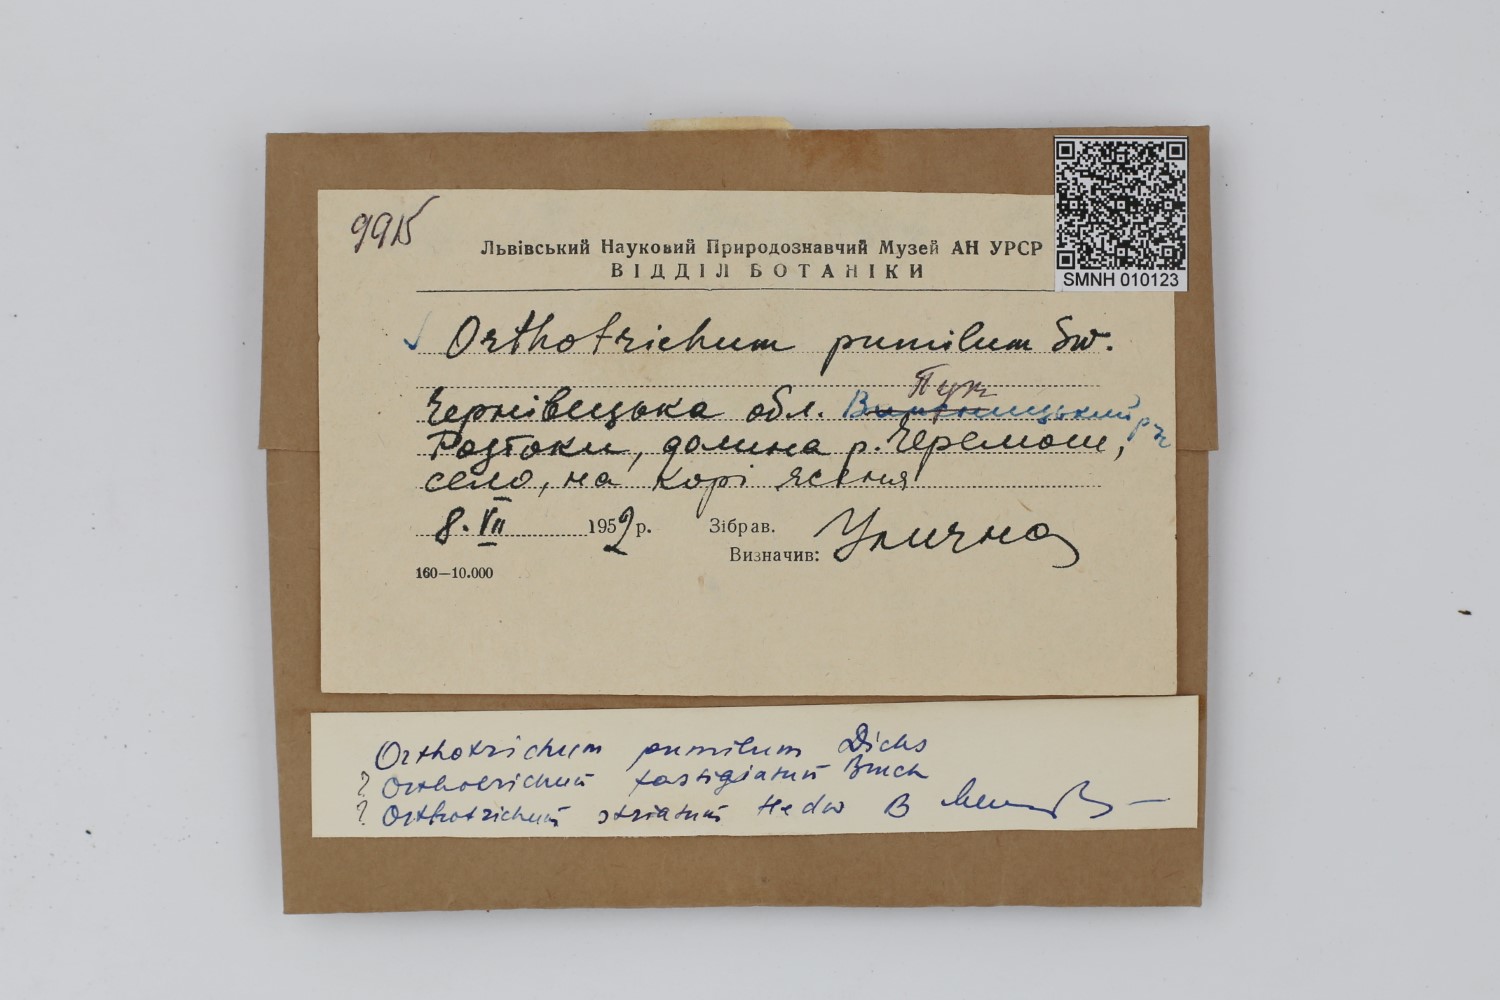 9915
Львівський Науковий Природознавчий Музей АН УРСР
ВІДДІЛ БОТАНІКИ
SMNH 010123
Orthotrichum pumilum Sw.
Пут
Чернівецька обл. р-н
Розтоки, долина р. Черемош,
село, на корі ясеня
8. VII 1952 р. Зібрав.
Визначив: Улична
160—10.000
Orthotrichum pumilum Dicks
? Orthotrichum fastigiatum Bruch
? Orthotrichum striatum Hedw В